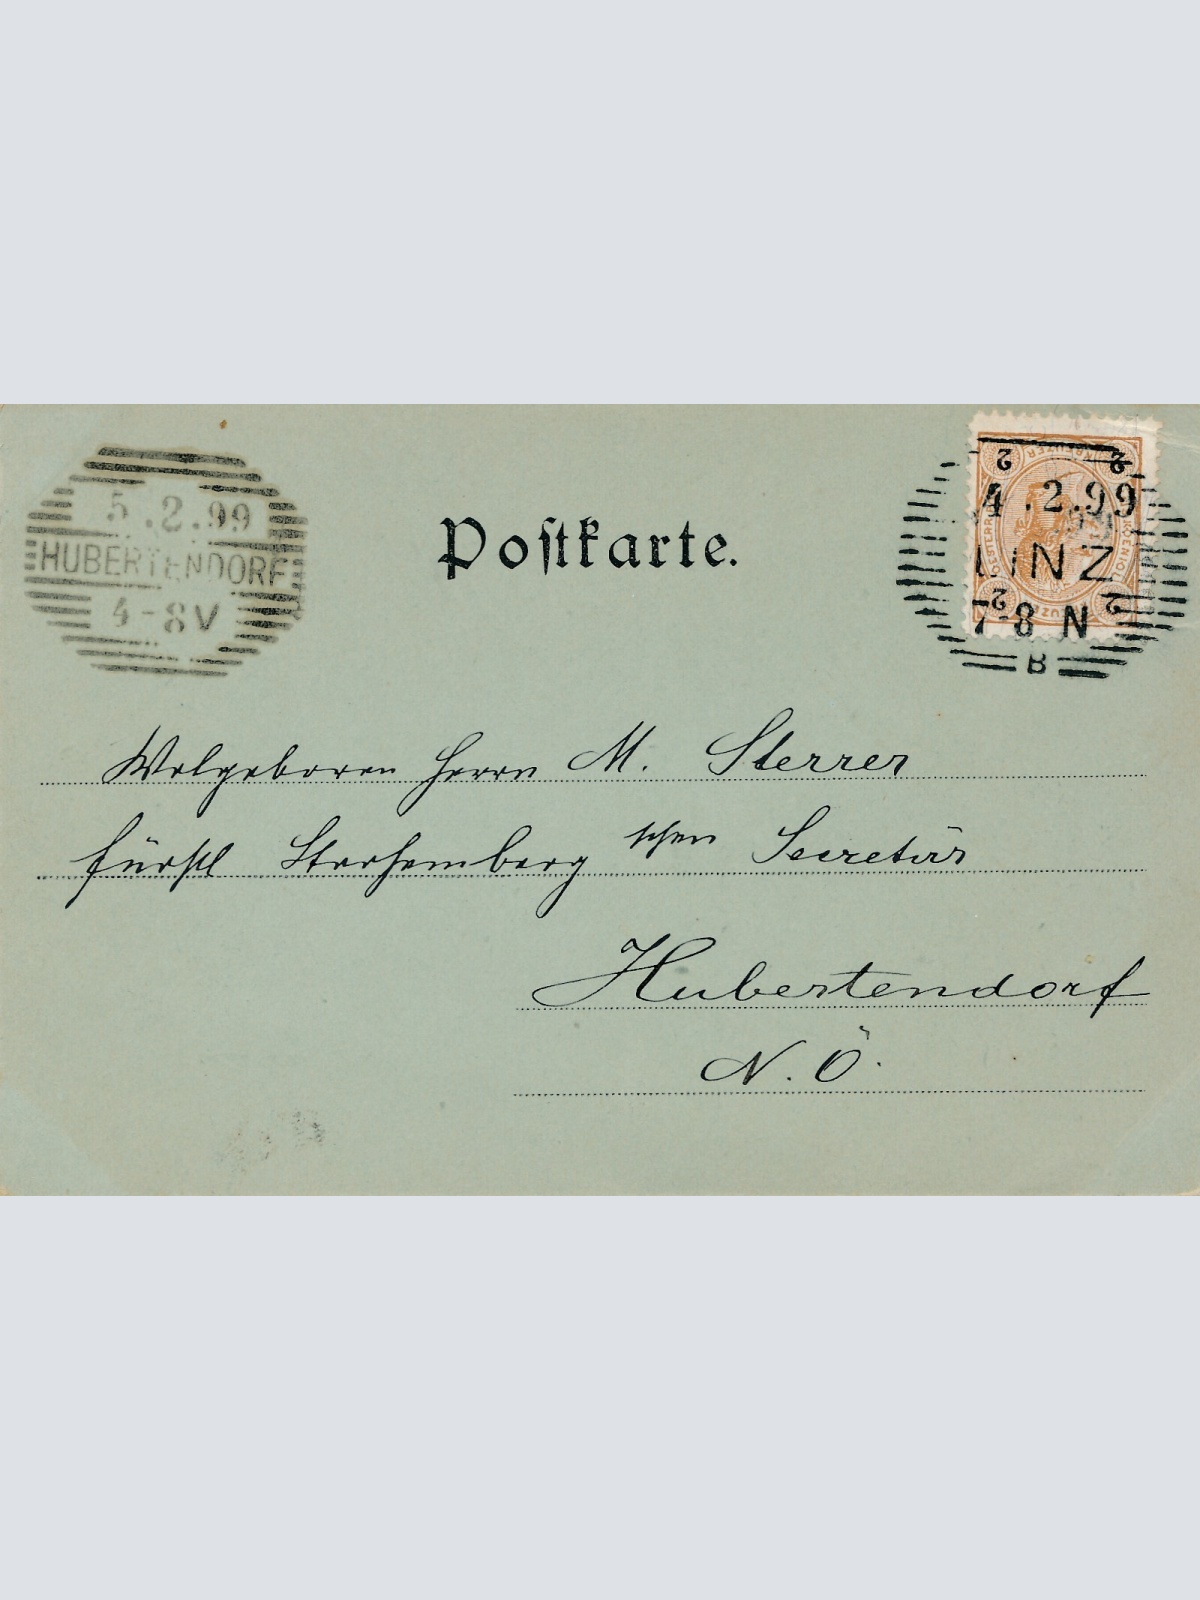 5.2.99
HUBERTENDORF
4-8V
Poſtkarte.
2 2
4.2.99
LINZ
7-8 N
2 2
B
Wolgeboren Herrn M. Sterrer
fürstl Starhemberg'schen Secretär
Hubertendorf
N. Ö.